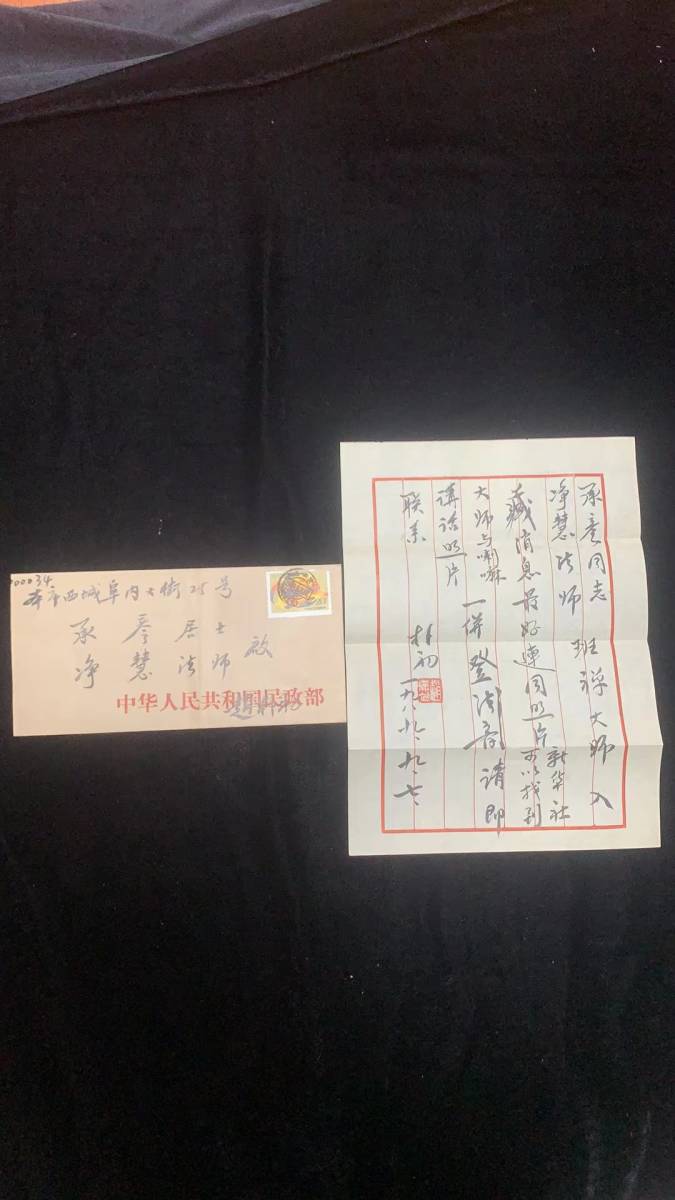 100034
本市西城阜内大街25号
承彦居士
净慧法师 啟
中华人民共和国民政部
赵朴初
承彦同志
净慧法师 班禅大师入
藏消息最好连同照片新华社可以找到
大师与喇嘛
讲话照片 一併登法音请即
联系
朴初
一九八、九、七、